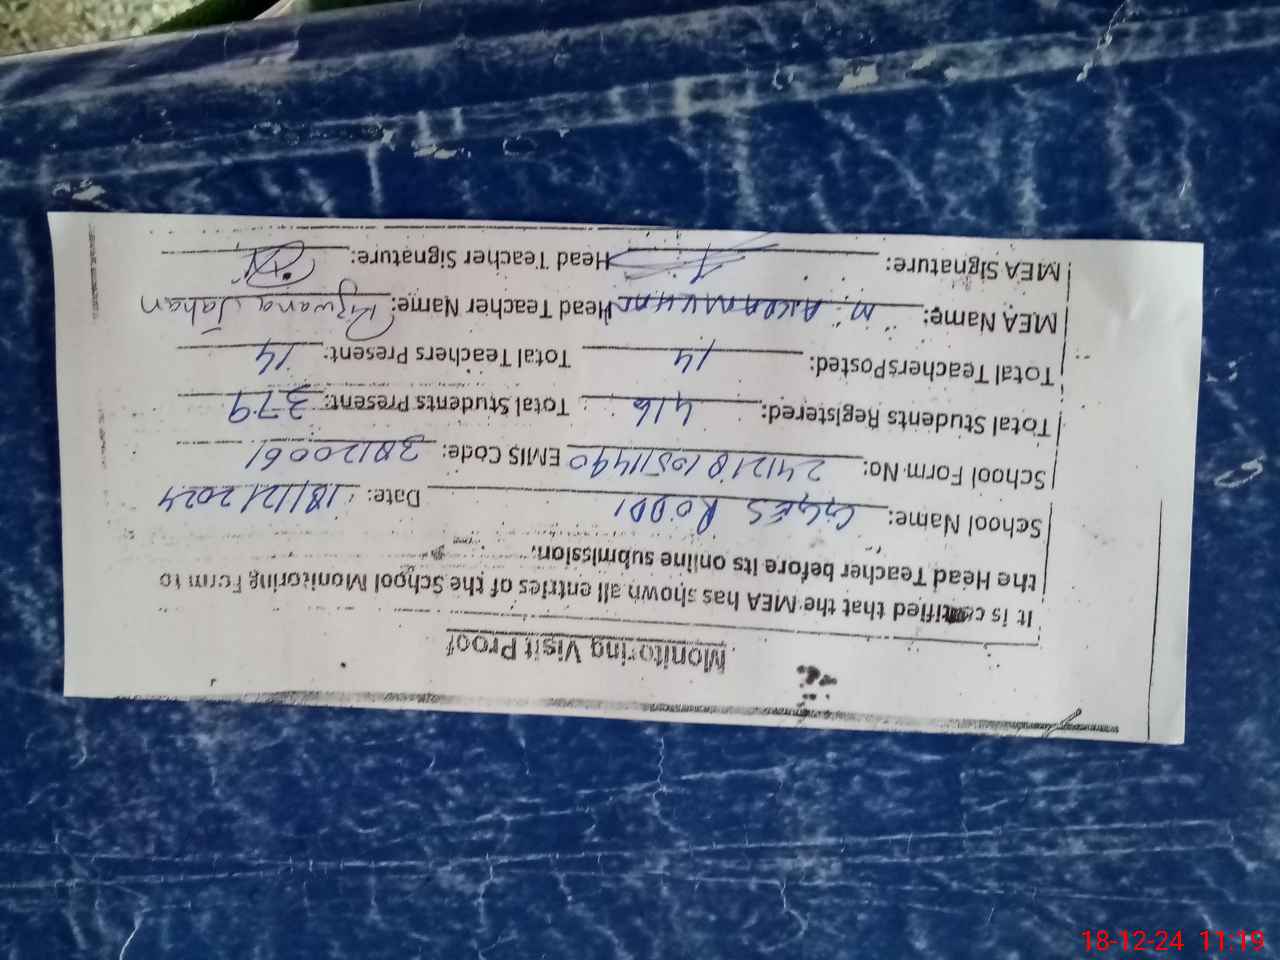 Monitoring Visit Proof
It is certified that the MEA has shown all entries of the School Monitoring Form to
the Head Teacher before its online submission.
School Name: GGES RODDI Date: 18/12/2024
School Form No: 24121810511490 EMIS Code: 38120061
Total Students Registered: 416 Total Students Present: 379
Total Teachers Posted: 14 Total Teachers Present: 14
MEA Name: M. Head Teacher Name: Rizwana Jahan
MEA Signature: Head Teacher Signature:
18-12-24 11:19